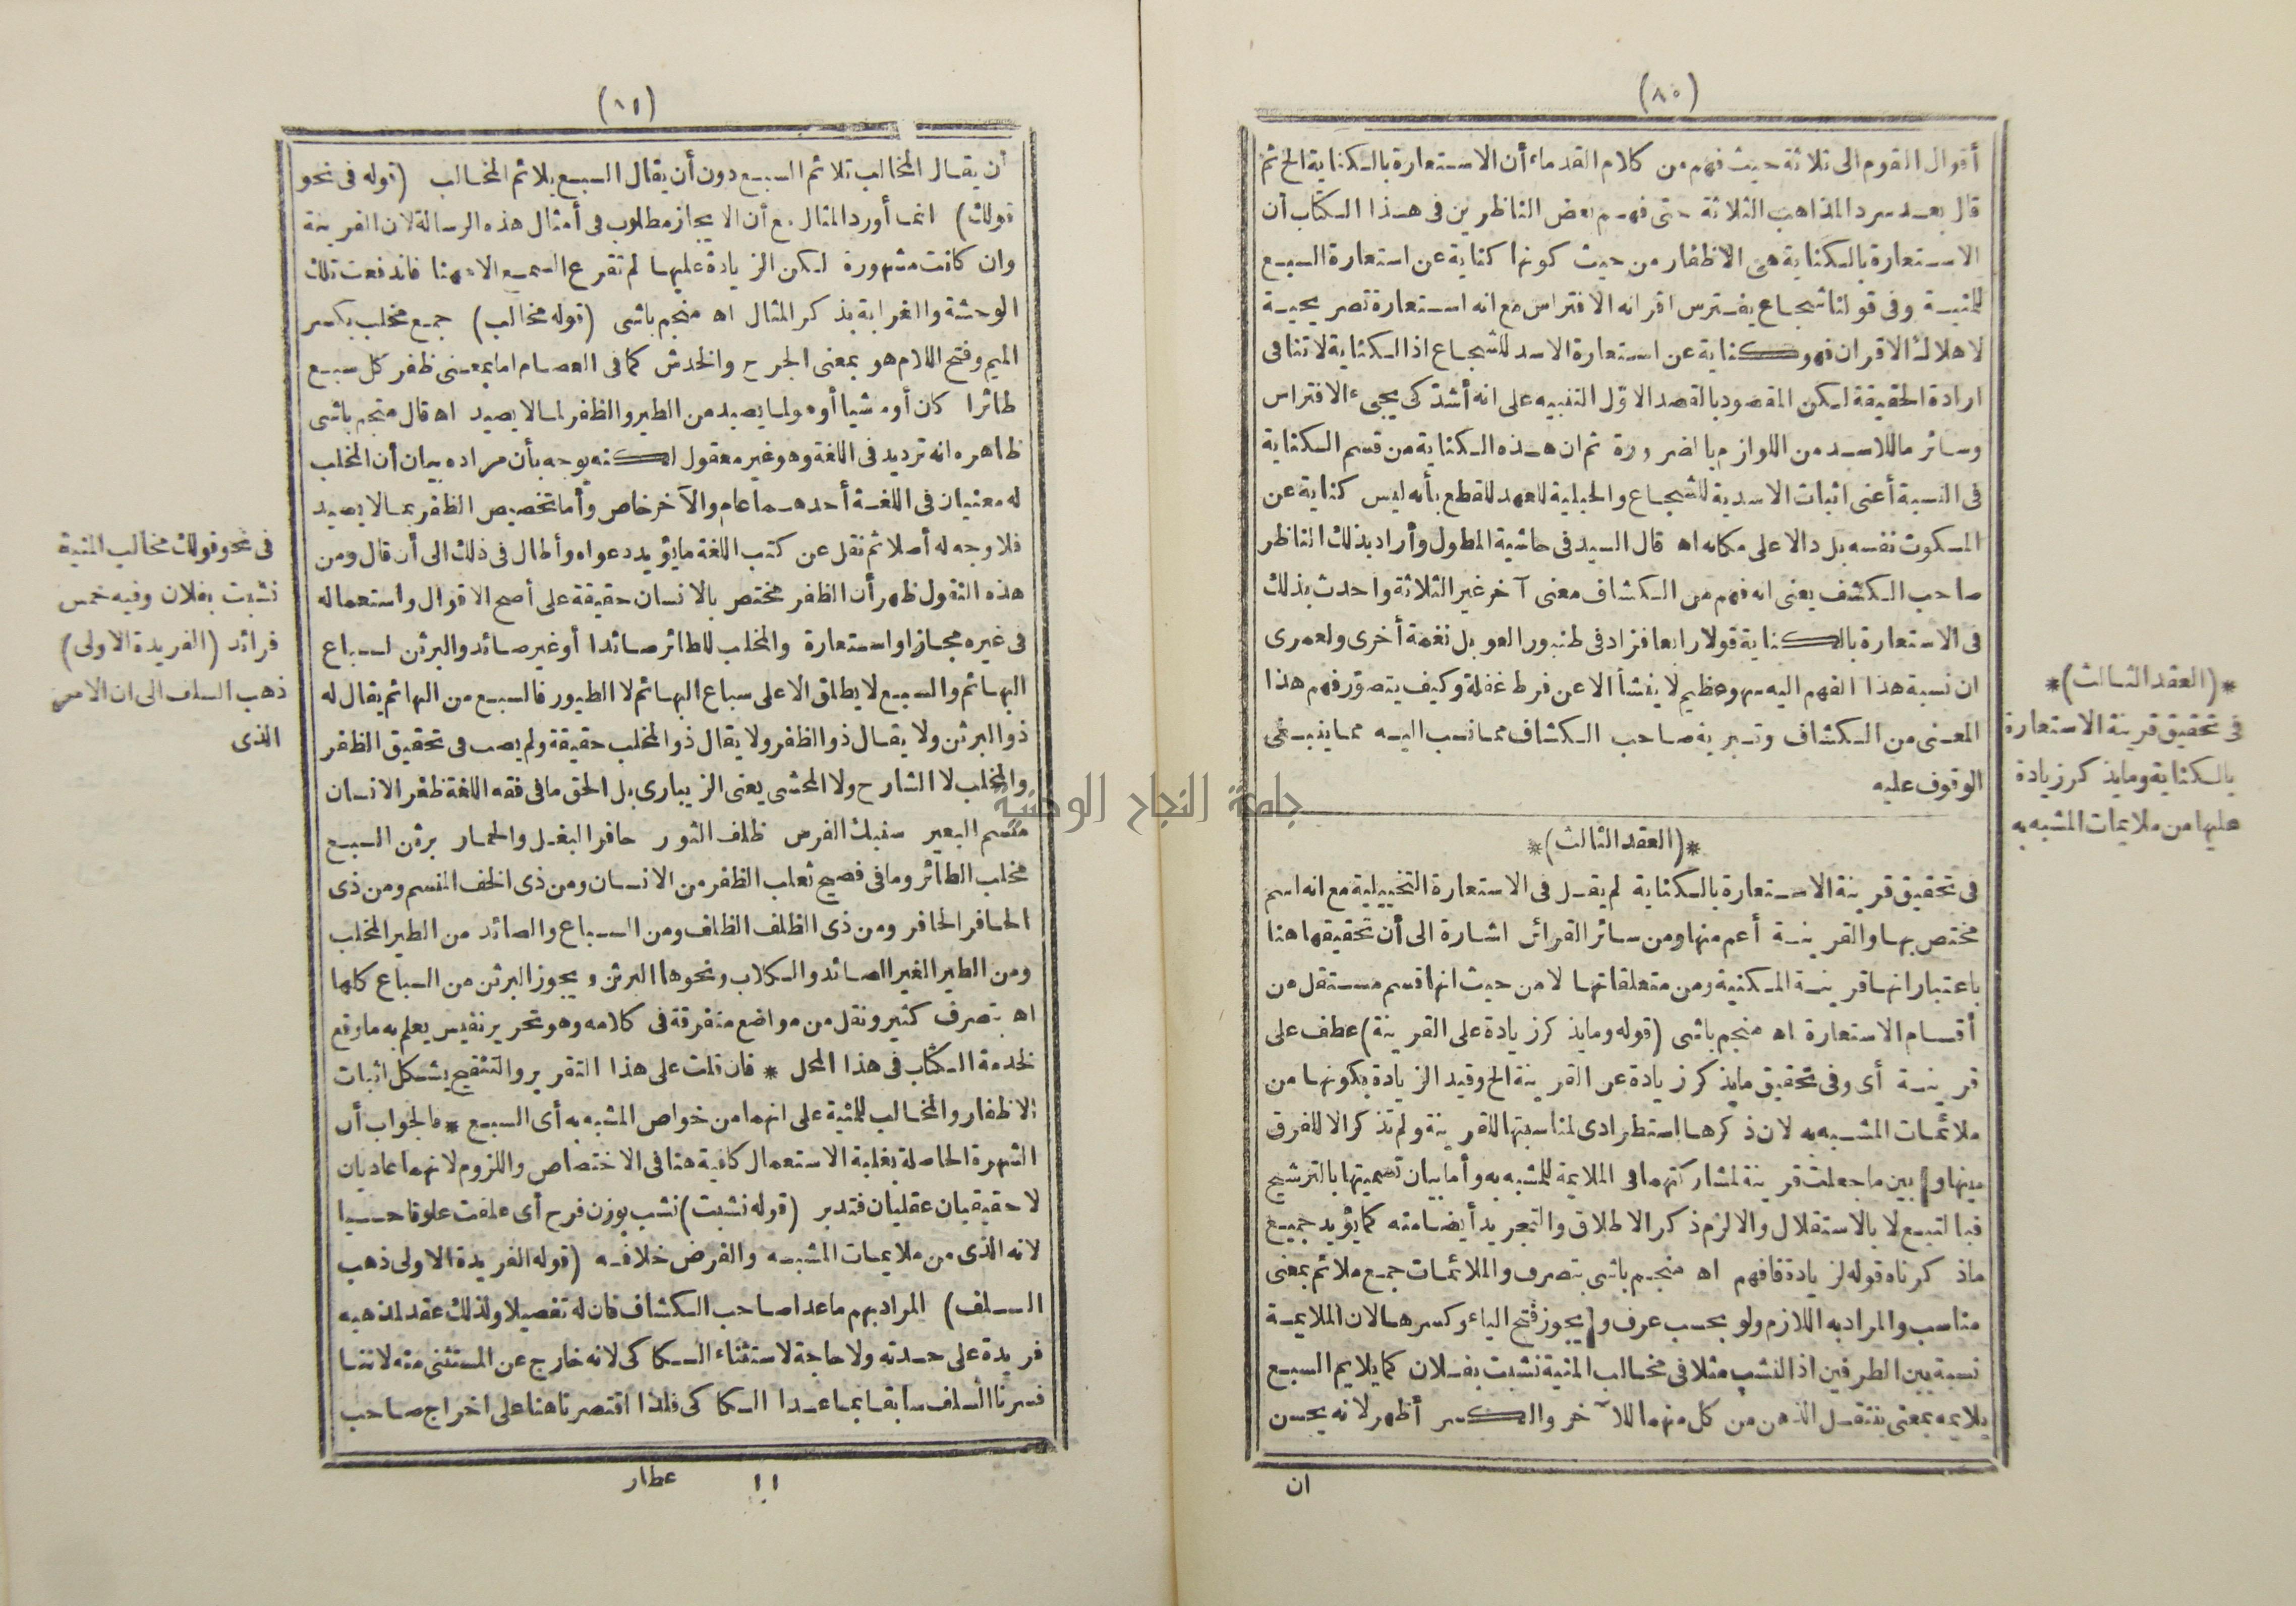 (٨٠)
أقوال القوم الى ثلاثة حيث فهم من كلام القدماء أن الاستعارة بالكناية الخ ثم
قال بعد سرد المذاهب الثلاثة حتى فهم بعض الناظرين فى هذا الكتاب أن
الاستعارة بالكناية هى الاظفار من حيث كونها كناية عن استعارة السبع
للمنية وفى قولنا شجاع يفترس اقرانه الافتراس مع انه استعارة تصريحية
لاهلاك الاقران فهو كناية عن استعارة الاسد للشجاع اذ الكناية لا تنافى
ارادة الحقيقة لكن المقصود بالقصد الاوّل التنبيه على انه أشد كى يجىء الافتراس
وسائر ما للاسد من اللوازم بالضرورة ثم ان هذه الكناية من قسم الكناية
فى النسبة أعنى اثبات الاسدية للشجاع والحبلية للعهد للقطع بأنه ليس كناية عن
المسكوت نفسه بل دالا على مكانه اه قال السيد فى حاشية المطول وأراد بذلك الناظر
صاحب الكشف يعنى انه فهم من الكشاف معنى آخر غير الثلاثة واحدث بذلك
فى الاستعارة بالكناية قولا رابعا فزاد فى طنبور العويل نغمة أخرى ولعمرى
ان نسبة هذا الفهم اليه سهو عظيم لا ينشأ الا عن فرط غفلة وكيف يتصوّر فهم هذا
المعنى من الكشاف وتبرية صاحب الكشاف مما نسب اليه مما ينبغى
الوقوف عليه
*(العقد الثالث)*
فى تحقيق قرينة الاستعارة بالكناية لم يقل فى الاستعارة التخييلية مع انه اسم
مختص بها والقرينة أعم منها ومن سائر القرائن اشارة الى أن تحقيقها هنا
باعتبار انها قرينة المكنية ومن متعلقاتها لا من حيث انها قسم مستقل من
أقسام الاستعارة اه منجم باشى (قوله وما يذكر زيادة على القرينة) عطف على
قرينة أى وفى تحقيق ما يذكر زيادة عن القرينة الخ وقيد الزيادة بكونها من
ملائمات المشبه به لان ذكرها استطرادى لمناسبتها للقرينة ولم تذكر الا للفرق
بينها وبين ما جعلت قرينة لمشاركتهما فى الملايمة للمشبه به وأما بيان تسميتها بالترشيح
فبالتبع لا بالاستقلال والا لزم ذكر الاطلاق والتجريد أيضا منه كما يؤيد جميع
ماذكرناه قوله لزيادة فافهم اه منجم باشى بتصرف والملائمات جمع ملائم بمعنى
مناسب والمراد به اللازم ولو بحسب عرف ويجوز فتح الياء وكسرها لان الملايمة
نسبة بين الطرفين اذ النشب مثلا فى مخالب المنية نشبت بفلان كما يلايم السبع
يلايمه بمعنى ينتقل الذهن من كل منهما للآخر والكسر أظهر لانه يحسن
ان
*(العقد الثالث)*
فى تحقيق قرينة الاستعارة
بالكناية وما يذكر زيادة
عليها من ملايمات المشبه به
(٨١)
أن يقال المخالب تلائم السبع دون أن يقال السبع يلائم المخالب (قوله فى نحو
قولك) انما أورد المثال مع أن الايجاز مطلوب فى أمثال هذه الرسالة لان القرينة
وان كانت مشهورة لكن الزيادة عليها لم تقرع السمع الا ههنا فاندفعت تلك
الوحشة والغرابة بذكر المثال اه منجم باشى (قوله مخالب) جمع مخلب بكسر
الميم وفتح اللام هو بمعنى الجرح والخدش كما فى العصام اما بمعنى ظفر كل سبع
طائرا كان أو ماشيا أو هو لما يصيد من الطير والظفر لما لا يصيد اه قال منجم باشى
ظاهره انه ترديد فى اللغة وهو غير معقول لكنه يوجه بأن مراده بيان أن المخلب
له معنيان فى اللغة أحدهما عام والآخر خاص وأما تخصيص الظفر بما لا يصيد
فلا وجه له أصلا ثم نقل عن كتب اللغة ما يؤيد دعواه وأطال فى ذلك الى أن قال ومن
هذه النقول ظهر أن الظفر مختص بالانسان حقيقة على أصح الاقوال واستعماله
فى غيره مجاز او استعارة والمخلب للطائر صائدا أو غير صائد والبرثن لسباع
البهائم والسبع لا يطلق الا على سباع البهائم لا الطيور فالسبع من البهائم يقال له
ذو البرثن ولا يقال ذو الظفر ولا يقال ذو المخلب حقيقة ولم يصب فى تحقيق الظفر
والمخلب لا الشارح ولا المحشى يعنى الزيبارى بل الحق ما فى فقه اللغة ظفر الانسان
منسم البعير سنبك الفرس ظلف الثور حافر البغل والحمار برثن السبع
مخلب الطائر وما فى فصيح ثعلب الظفر من الانسان ومن ذى الخف المنسم ومن ذى
الحافر الحافر ومن ذى الظلف الظلف ومن السباع والصائد من الطير المخلب
ومن الطير الغير الصائد والكلاب ونحوها البرثن ويجوز البرثن من السباع كلها
اه بتصرف كثير ونقل من مواضع متفرقة فى كلامه وهو تحرير نفيس يعلم به ما وقع
لخدمة الكتاب فى هذا المحل * فان قلت على هذا التقرير والتنقيح يشكل اثبات
الاظفار والمخالب للمنية على انهما من خواص المشبه به أى السبع * فالجواب أن
الشهرة الحاصلة بغلبة الاستعمال كافية هنا فى الاختصاص واللزوم لانهما عاديان
لا حقيقيان عقليان فتدبر (قوله نشبت) نشب بوزن فرح أى علقت علوقا حسيا
لانه الذى من ملايمات المشبه والفرض خلافه (قوله الفريدة الاولى ذهب
السلف) المراد بهم ما عدا صاحب الكشاف فان له تفصيلا ولذلك عقد لمذهبه
فريدة على حدته ولا حاجة لاستثناء السكاكى لانه خارج عن المستثنى منه لاننا
فسرنا السلف سابقا بما عدا السكاكى فلذا اقتصرنا هنا على اخراج صاحب
١١ عطار
فى نحو قولك مخالب المنية
نشبت بفلان وفيه خمس
فرائد (الفريدة الاولى)
ذهب السلف الى ان الامر
الذى
جامعة النجاح الوطنية